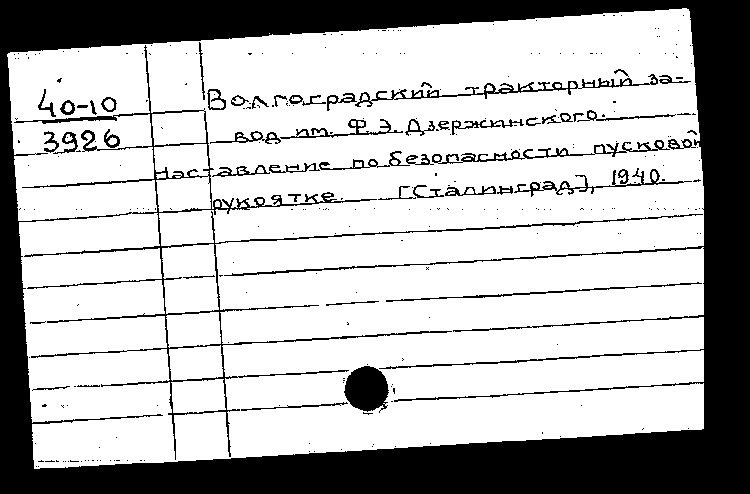 40-10
3926
Волгоградский тракторный за-
вод им. Ф.Э. Дзержинского.
Наставление по безопасности пусковой
рукоятке. [Сталинград], 1940.